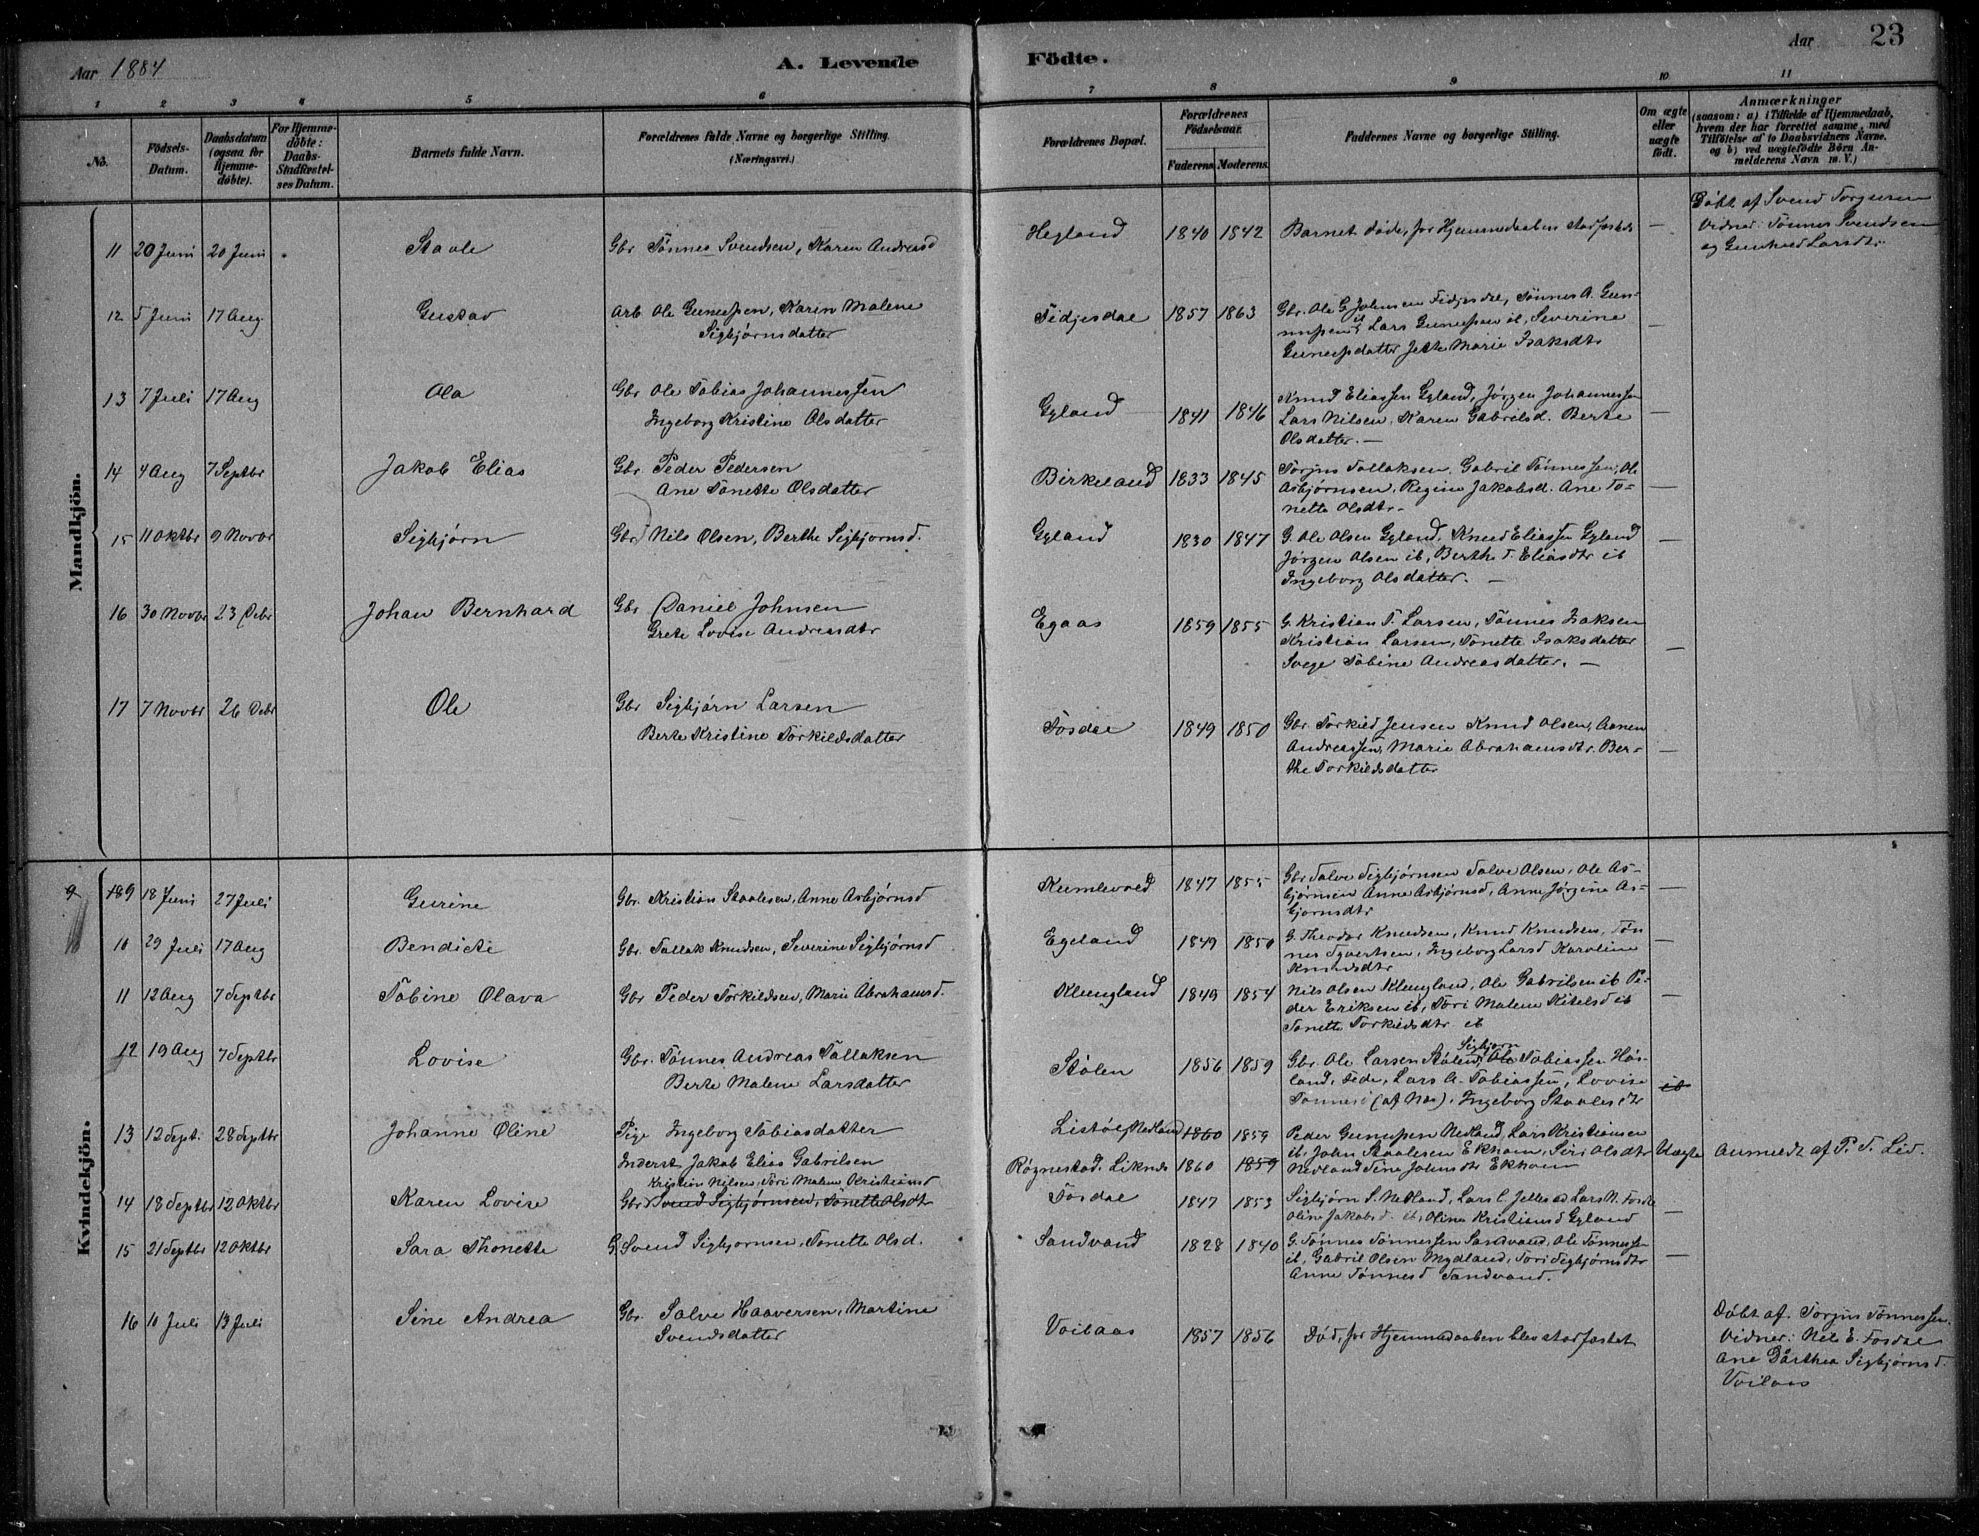 Aar 1884
A. Levende
Födte.
Aar
23
1 2 3 4 5 6 7 8 9 10 11
No.
Födsels-Datum.
Daabsdatum (ogsaa for Hjemmedöbte).
For Hjemmedöbte: Daabs-Stadfæstelses Datum.
Barnets fulde Navn.
Forældrenes fulde Navne og borgerlige Stilling.
(Næringsvei.)
Forældrenes Bopæl.
Forældrenes Födselsaar.
Faderens. Moderens.
Faddernes Navne og borgerlige Stilling.
Om ægte eller uægte födt.
Anmærkninger
(saasom: a) i Tilfælde af Hjemmedaab, hvem der har forrettet samme, med Tilföielse af to Daabsvidners Navne, og b) ved uægtefödte Börn Anmelderens Navn m. V.)
Mandkjön.
11 20 Juni 20 Juni Staale Gbr Tönnes Svendsen, Karen Andreasd Hegland 1840 1842 Barnet döde, för Hjemmedaaben stadfæstedes —
Döbt af Svend
Vidner: Tönnes Svendsen
og Gunhild Larsdtr.
12 5 Juni 17 Aug Gustav Arb Ole Gunufsen, Karin Malene
Sigbjørnsdatter
Fidjesdal 1857 1863 Gbr. Ole G Johnsen Fidjesdal, Tönnes A. Gun-
nufsen ib Lars Gunufsen ib, Severine
Gunufsdatter Marie Isaksdtr —
13 7 Juli 17 Aug Ola Gbr Ole Tobias Johannessen
Ingeborg Kristine Olsdatter
Gyland 1841 1846 Knud Eliassen Gyland, Jörgen Johannessen
Lars Nilsen, Karen Gabrielsd. Berte
Olsdatter. — —
14 4 Aug 7 Septbr Jakob Elias Gbr. Peder Pedersen
Ane Tonette Olsdatter
Birkeland 1833 1845 Torjus Tallaksen, Gabriel Tönnessen, Ole
Asbjørnsen, Regine Jakobsd. Ane To-
nette Olsdtr. —
15 11 Oktbr 9 Novbr Sigbjørn Gbr. Nils Olsen, Berthe Sigbjornsd. Gyland 1830 1847 G. Ole Olsen Gyland, Knud Eliassen Gyland
Jörgen Olsen ib, Berthe Eliasdtr ib
Ingeborg Olsdatter. — —
16 30 Novbr 23 Debr Johan Bernhard Gbr Daniel Johnsen
Grete Lovise Andreasdtr
Egaas 1859 1855 G. Kristian T. Larsen, Tönnes Isaksen
Kristian Larsen, Tonette Isaksdatter
Svege Tobine Andreasdatter. — —
17 7 Novbr 26 Debr Ole Gbr Sigbjørn Larsen
Berte Kristine Torkildsdatter
Tosdal 1849 1850 Gbr. Torkild Jensen Knud Olsen, Aanen
Andreassen, Marie Abrahamsdtr. Ber-
the Torkildsdatter —
Kvindekjön.
9 189 18 Juni 27 Juli Gurine Gbr. Kristian Staalesen, Anne Asbjørnsd Kumlevold 1847 1855 Gbr. Salve Sigbjørnsen Salve Olsen, Ole As-
bjørnsen Anne Asbjørnsd, Anne Jörgine As-
bjørnsdtr —
10 29 Juli 17 Aug Bendicte Gbr. Tallak Knudsen, Severine Sigbjørnsd Egeland 1849 1850 G. Theodor Knudsen, Knud Knudsen, Tön-
nes Syvertsen, Ingeborg Larsd Karoline
Knudsdtr —
11 12 Aug 7 Septbr Tobine Olava Gbr Peder Torkildsen, Marie Abrahamsd. Klungland 1849 1854 Nils Olsen Klungland, Ole Gabrielsen ib Pe-
der Eriksen ib, Tori Malene Kitelsd ib
Tonette Torkildsdtr ib —
12 19 Aug 7 Septbr Lovise Gbr. Tönnes Andreas Tallaksen
Berte Malene Larsdatter
Stölen 1856 1859 Gbr. Ole Larsen Stölen, Sigbjørn Ole Tobiassen Hös-
land, Lars A. Tobiassen, Lovise
Tönnesd (af Næs), Ingeborg Staalesdtr ib
13 12 Sept. 28 Septbr Johanne Oline Pige Ingeborg Tobiasdatter
Inderst Jakob Elias Gabrielsen
Listöl, Nedland 1860 1859
Rögnestad. Liknes 1860 1859
Peder Gunufsen Nedland, Lars Kristiansen
ib, John Staalesen Ekhom, Siri Olsdtr
Nedland Sine Johnsdtr Ekhom
Uægte Anmeldt af P. T. Lid.
14 18 Septbr 12 Oktbr Karen Lovise Kristian Nilsen, Tori Malene Kristiansd
Gbr Svend Sigbjørnsen, Tonette Olsdt
Tosdal 1847 1853 Sigbjørn S. Nedland, Lars C. Lars N. Tosdal
Oline Jakobsd. ib, Oline Kristiansd Gyland —
15 21 Septbr 12 Oktbr Sara Thonette G Svend Sigbjørnsen, Tonette Olsd. Sandvand 1828 1840 G. Tönnes Tönnessen Sandvand, Ole Tönnessen
ib, Gabriel Olsen Mydland, Tori Sigbjørnsdtr
Anne Tönnesd Sandvand. —
16 10 Juli 13 Juli Sine Andrea Gbr. Salve Haaversen, Martine
Svendsdatter
Voilaas 1857 1856 Död, för Hjemmedaaben blev stadfæstet
Döbt af. Torjus Tönnessen.
Vidner: Nils E. Tosdal
Ane Dårthea Sigbjørnsd.
Voilaas